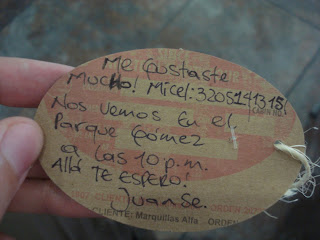 Me Gustaste
Mucho! Mi cel: 3208141315
CABIN NO.
Nos vemos en el
Parque Gómez
a las 10 p.m.
Allá TE ESPERO!
Juanse.
CLIENTE: Marquillas Alfa ORDEN